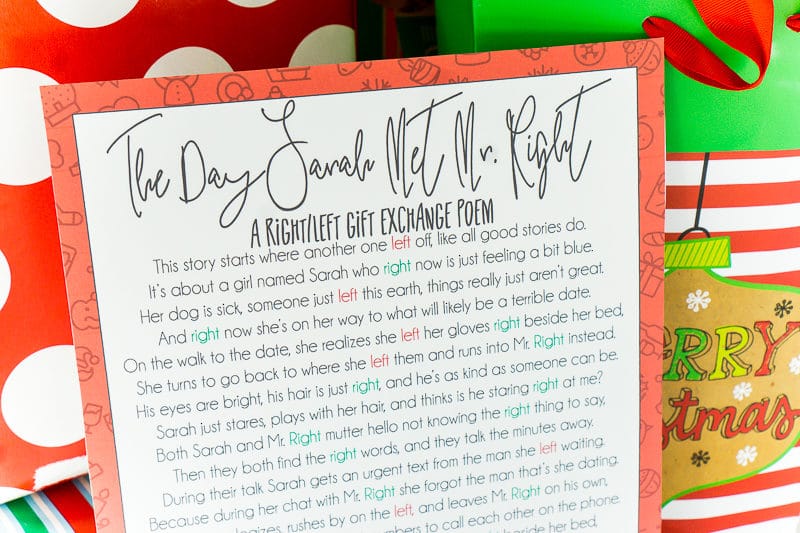 The Day Sarah Met Mr. Right
A RIGHT/LEFT GIFT EXCHANGE POEM
This story starts where another one left off, like all good stories do.
It's about a girl named Sarah who right now is just feeling a bit blue.
Her dog is sick, someone just left this earth, things really just aren't great.
And right now she's on her way to what will likely be a terrible date.
On the walk to the date, she realizes she left her gloves right beside her bed,
She turns to go back to where she left them and runs into Mr. Right instead.
His eyes are bright, his hair is just right, and he's as kind as someone can be.
Sarah just stares, plays with her hair, and thinks is he staring right at me?
Both Sarah and Mr. Right mutter hello not knowing the right thing to say,
Then they both find the right words, and they talk the minutes away.
During their talk Sarah gets an urgent text from the man she left waiting.
Because during her chat with Mr. Right she forgot the man that's she dating.
rushes by on the left, and leaves Mr. Right on his own,
to call each other on the phone.
beside her bed,
RRY
stmas